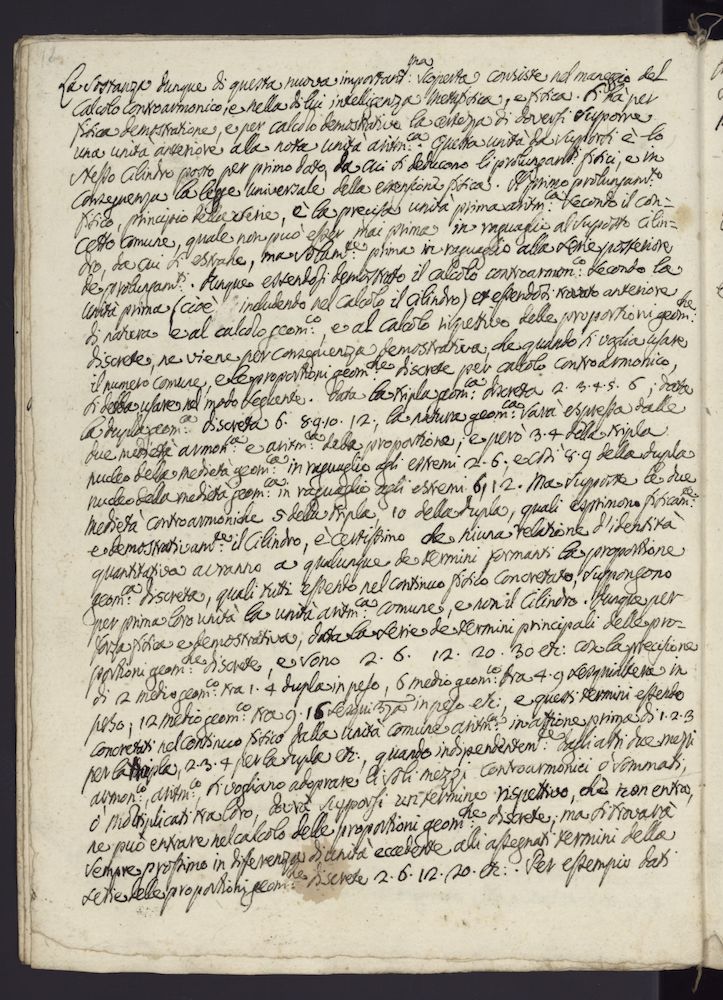 12
La sostanza dunque di questa nuova important:ma scoperta consiste nel maneggio del
Calcolo controarmonico, e nella di lui intelligenza Metafisica, e fisica. Si ha per
fisica demostrazione, e per calcolo demostrativo la certezza di doversi supporre
una unità anteriore alla nota unità aritm:ca Questa unità da supporsi è lo
stesso Cilindro posto per primo dato, da cui si deducono li prolungam:ti fisici, e in
conseguenza la legge universale della estensione fisica. Il primo prolungam:to
fisico, principio della serie, è la precisa unità prima aritm:ca secondo il con=
cetto comune, quale non può esser mai prima in raguaglio al supposto Cilin=
dro, da cui si estrahe, ma solam:te prima in raguaglio alla serie posteriore
de prolungam:ti. Dunque essendosi demostrato il calcolo controarmon:co secondo la
unità prima (cioè includendo nel calcolo il Cilindro) et essendosi trovato anteriore
di natura e al calcolo geom:co, e al calcolo rispettivo delle proporzioni geom:che
discrete, ne viene per conseguenza demostrativa, che quando si voglia usare
il numero comune, e le proporzioni geom:che discrete per calcolo controarmonico,
si debba usare nel modo seguente. Data la tripla geom:ca discreta 2. 3. 4. 5. 6; data
la dupla geom:ca discreta 6. 8. 9. 10. 12; la natura geom:ca sarà espressa dalle
due medietà armon:ca e aritm:ca della proporzione; e però 3. 4 della tripla
nucleo della medietà geom:ca in raguaglio agli estremi 2. 6; e così 8. 9 della dupla
nucleo della medietà geom:ca in raguaglio agli estremi 6, 12. Ma supposte le due
medietà controarmoniche 5 della tripla, 10 della dupla, quali esprimono fisicam:te
e demostrativam:te il Cilindro, è certissimo che niuna relazione d'identità
quantitativa avranno a qualunque de termini formanti la proporzione
geom:ca discreta, quali tutti essendo nel continuo fisico concretato, suppongono
per prima loro unità la unità aritm:ca comune, e non il Cilindro. Dunque per
forza fisica e demostrativa, data la serie de termini principali delle pro=
porzioni geom:che discrete, e sono 2. 6. 12. 20. 30 etc: con la precisione
di 2 medio geom:co tra 1. 4 dupla in peso, 6 medio geom:co tra 4. 9 sesquialtera in
peso, 12 medio geom:co tra 9. 16 sesquiterza in peso etc:, e questi termini essendo
concretati nel continuo fisico dalla unità comune aritm:ca in azione prima di 1. 2. 3
per la tripla, 2. 3. 4 per la dupla etc:, quando independentem:te dagli altri due mezzi
armon:co, aritm:co si vogliano adoprare li soli mezzi controarmonici o sommati,
o moltiplicati tra loro, dovrà supporsi un termine rispettivo, che non entra,
ne può entrare nel calcolo delle proporzioni geom:che discrete; ma si trovarà
sempre prossimo in diferenza di unità eccedente alli assegnati termini della
serie delle proporzioni geom:che discrete 2. 6. 12. 20. etc:. Per essempio dati